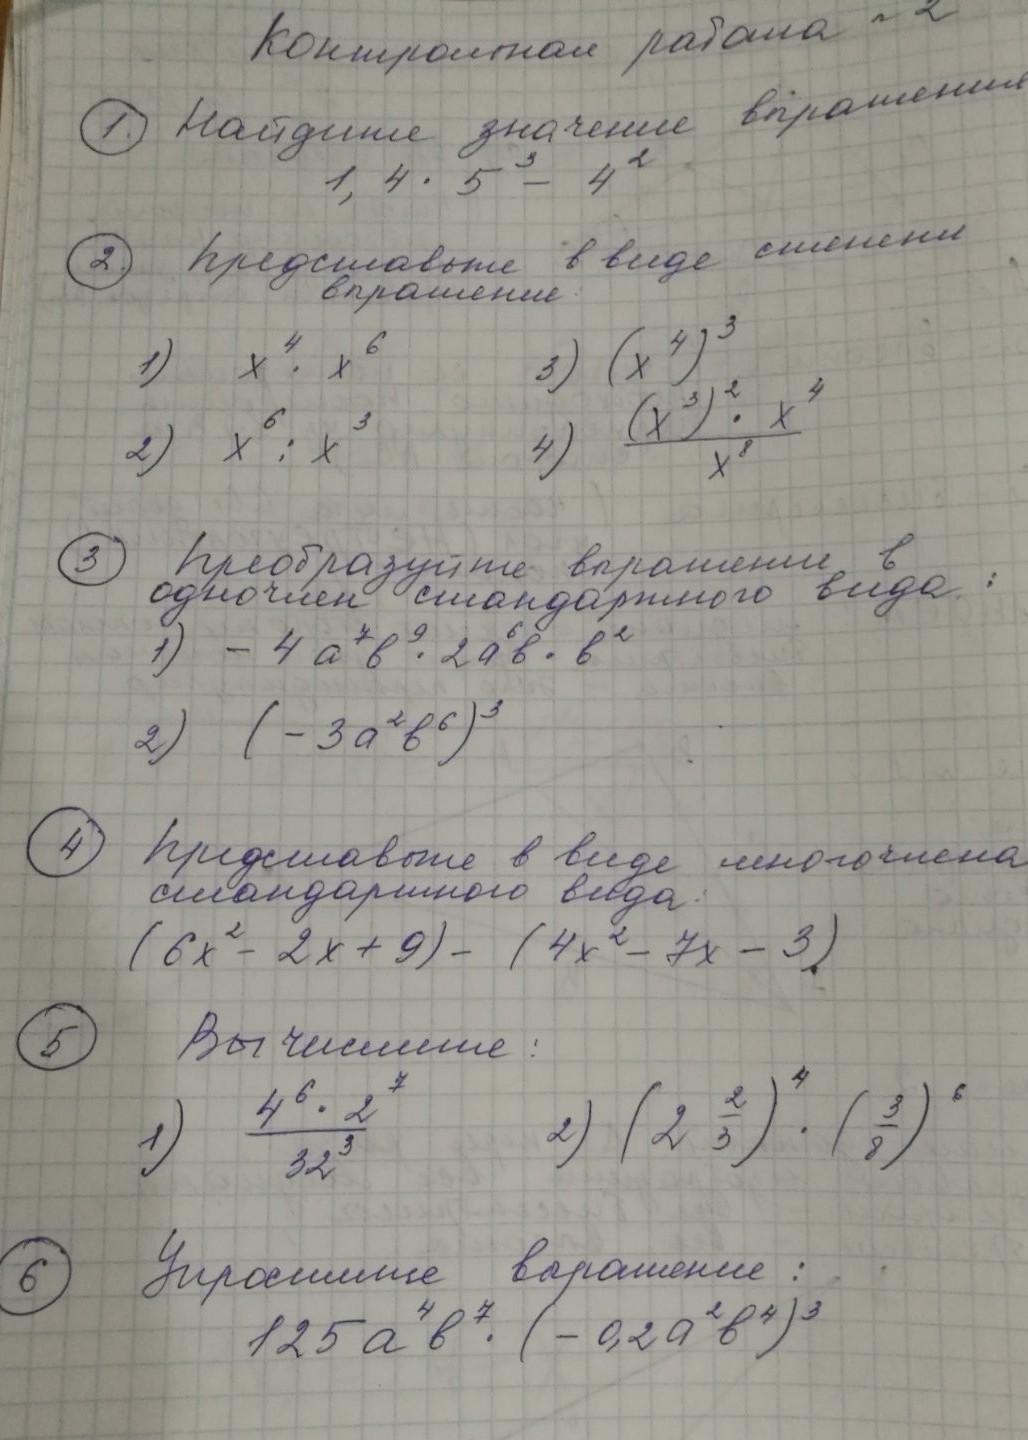 Контрольная работа №2
1. Найдите значение выражения
1,4 · 5³ - 4²
2. Представьте в виде степени
выражение:
1) x⁴ · x⁶ 3) (x⁴)³
2) x⁶ : x³ 4) (x³)² · x⁴ / x⁸
3 Преобразуйте выражение в
одночлен стандартного вида:
1) - 4a⁷b⁹ · 2a⁶b · b²
2) (- 3a²b⁶)³
4 Представьте в виде многочлена
стандартного вида:
(6x² - 2x + 9) - (4x² - 7x - 3).
5 Вычислите:
1) 4⁶ · 2⁷ / 32³ 2) (2 2/3)⁴ · (3/8)⁶
6 Упростите выражение:
125a⁴b⁷ · (- 0,2a²b⁴)³